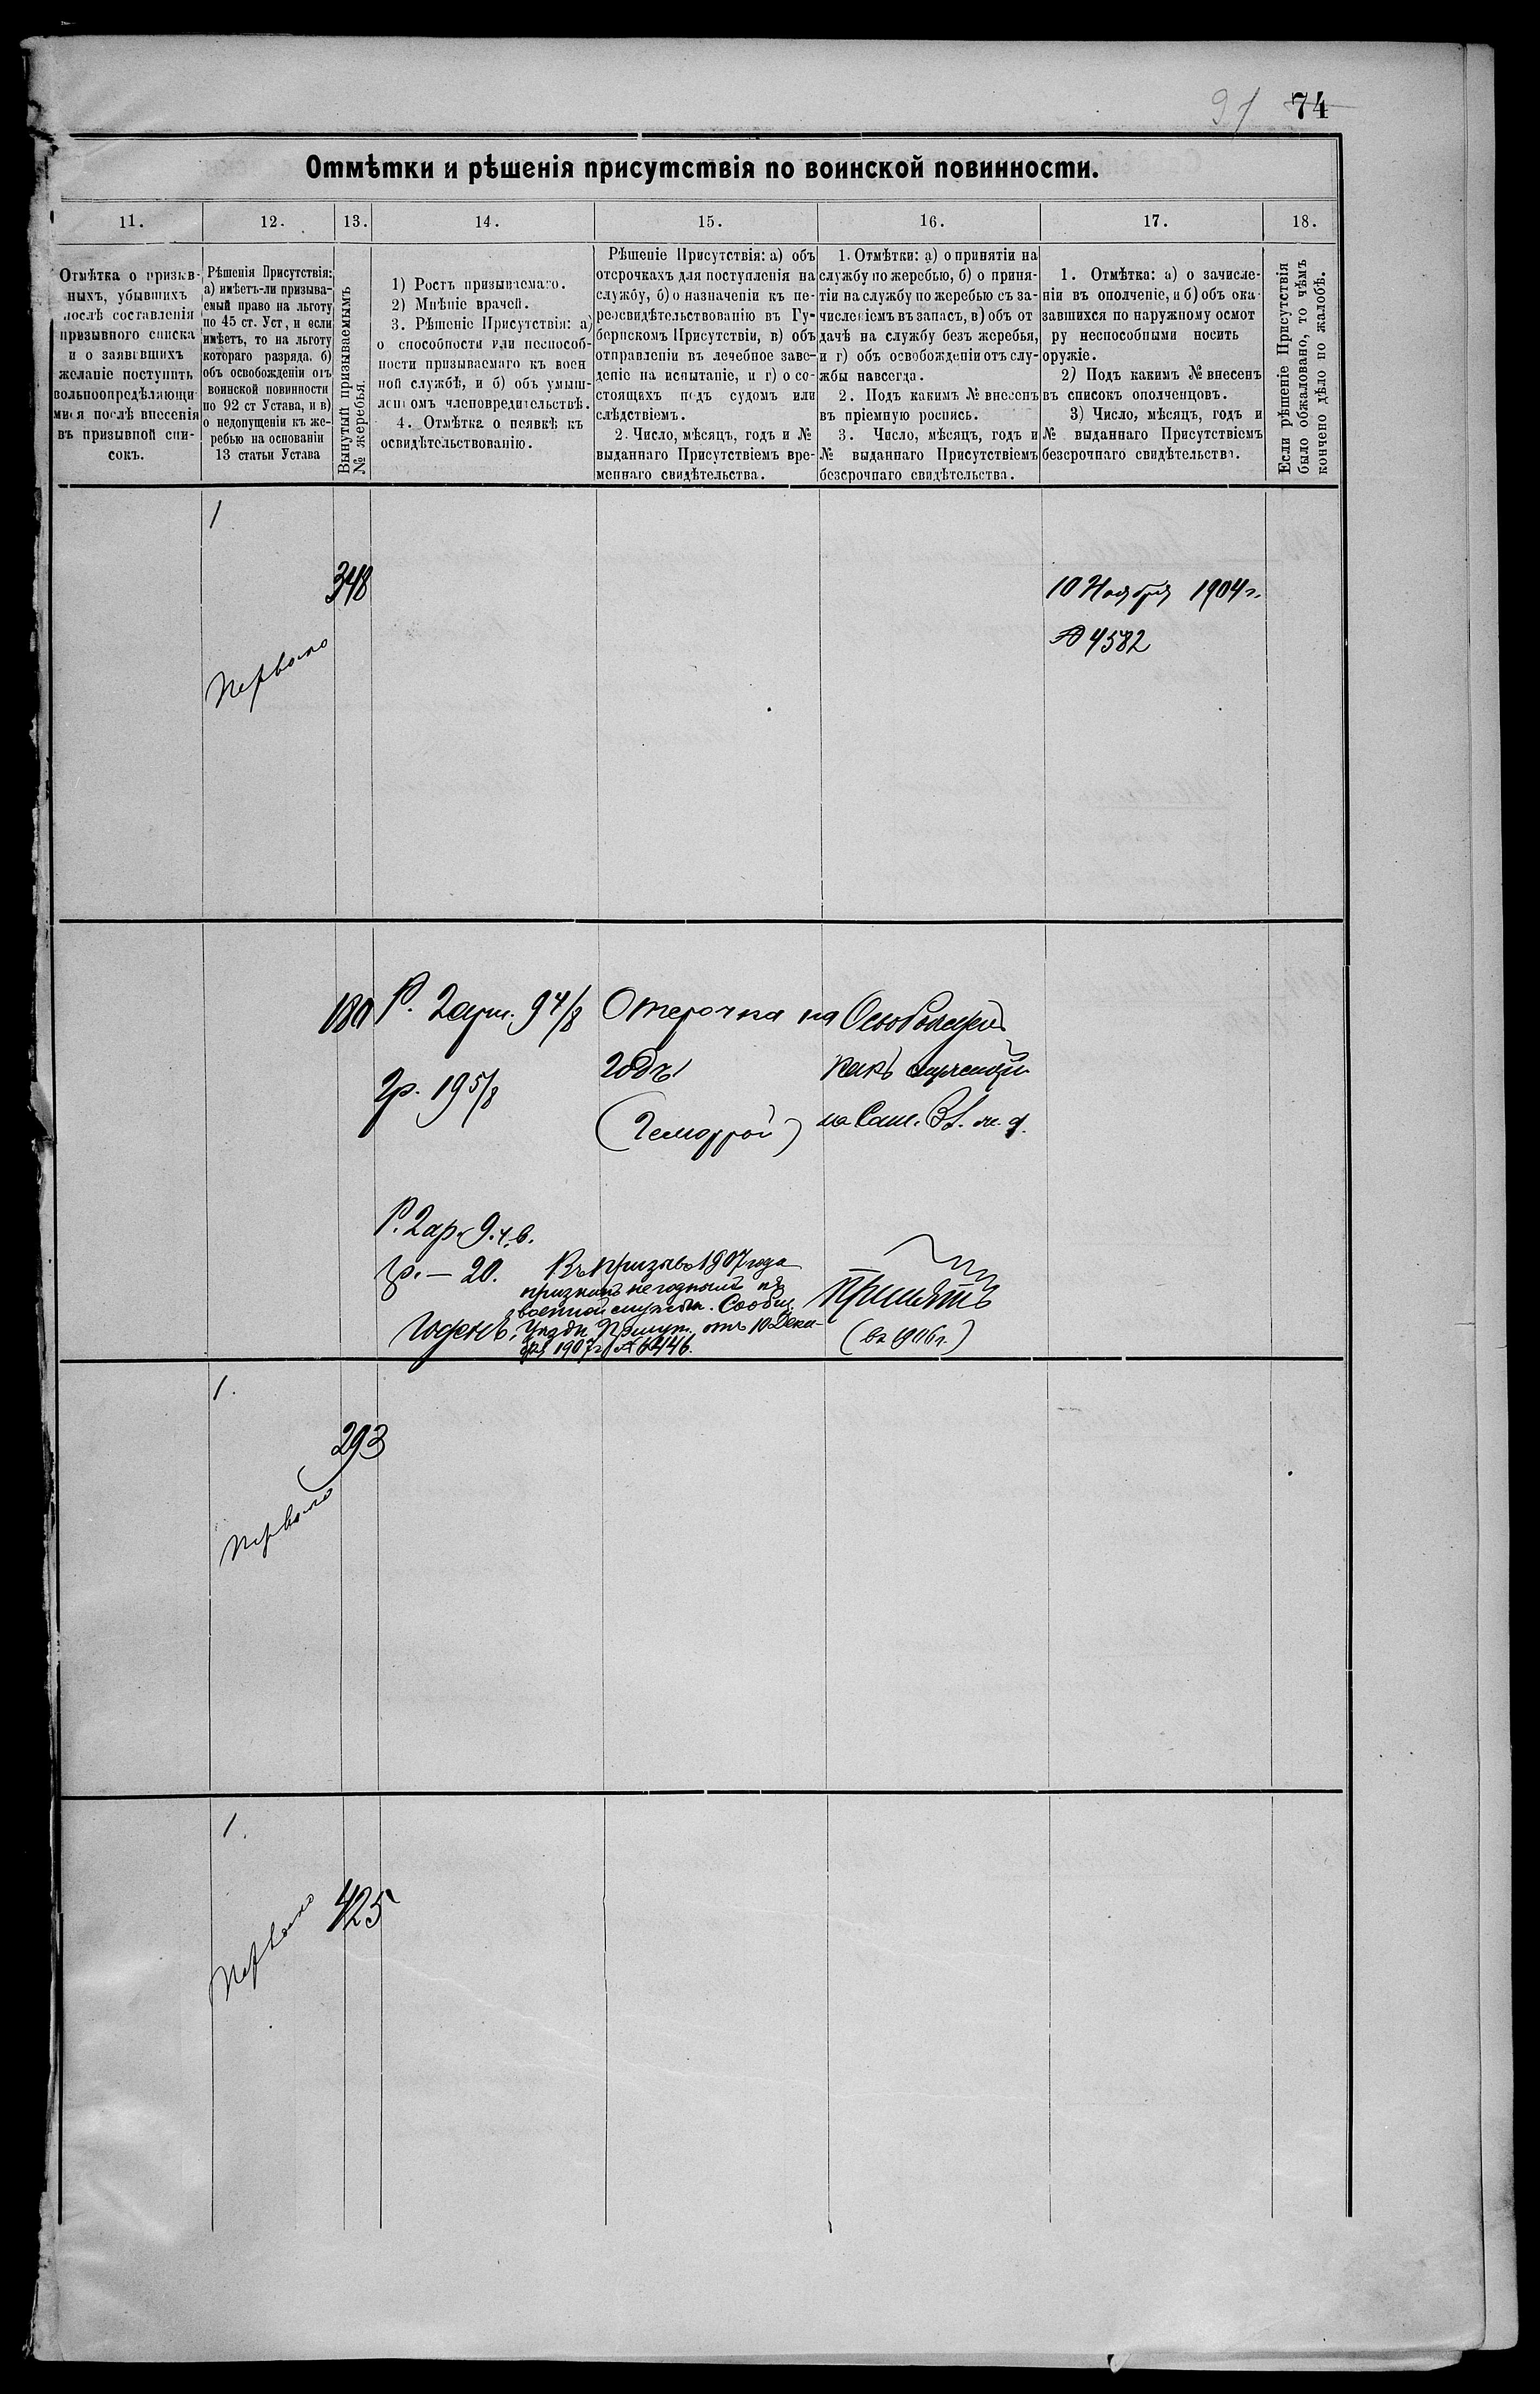 91 74
Отмѣтки и рѣшенія присутствія по воинской повинности.
11. 12. 13. 14. 15. 16. 17. 18.
Отмѣтка о призыв-
ныхъ, убывшихъ
послѣ составленія
призывного списка
и о заявившихъ
желаніе поступить
вольноопредѣляющи
мися послѣ внесенія
въ призывной спи-
сокъ.
Рѣшенія Присутствія:
а) имѣетъ-ли призыва-
емый право на льготу
по 45 ст. Уст, и если
имѣетъ, то на льготу
котораго разряда, б)
объ освобожденіи отъ
воинской повинности
по 92 ст Устава, и в)
о недопущеніи къ же-
ребью на основаніи
13 статьи Устава
Вынутый призываемымъ
№ жеребья.
1) Ростъ призываемаго.
2) Мнѣніе врачей.
3. Рѣшеніе Присутствія: а)
о способности или неспособ-
ности призываемаго къ воен
ной службѣ, и б) объ умыш-
ленномъ членовредительствѣ.
4. Отмѣтка о неявкѣ къ
освидѣтельствованію.
Рѣшеніе Присутствія: а) объ
отсрочкахъ для поступленія на
службу, б) о назначеніи къ пе-
реосвидѣтельствованію въ Гу-
бернскомъ Присутствіи, в) объ
отправленіи въ лечебное заве-
деніе на испытаніе, и г) о со-
стоящихъ подъ судомъ или
слѣдствіемъ.
2. Число, мѣсяцъ, годъ и №
выданнаго Присутствіемъ вре-
меннаго свидѣтельства.
1. Отмѣтки: а) о принятіи на
службу по жеребью, б) о приня-
тіи на службу по жеребью съ за-
численіемъ въ запасъ, в) объ от
дачѣ на службу безъ жеребья,
и г) объ освобожденіи отъ слу-
жбы навсегда.
2. Подъ какимъ № внесенъ
въ пріемную роспись.
3. Число, мѣсяцъ, годъ и
№ выданнаго Присутствіемъ
безсрочнаго свидѣтельства.
1. Отмѣтка: а) о зачисле-
ніи въ ополченіе, и б) объ ока-
завшихся по наружному осмот
ру неспособными носить
оружіе.
2) Подъ какимъ № внесенъ
въ списокъ ополченцовъ.
3) Число, мѣсяцъ, годъ и
№ выданнаго Присутствіемъ
безсрочнаго свидѣтельства.
Если рѣшеніе Присутствія
было обжаловано, то чѣмъ
кончено дѣло по жалобѣ.
1
348
10 Ноября 1904 г.
№ 4582
180
Р. 2 арш. 9 4/8
гр. 19 5/8
Отсрочка на
годъ
(Геморрой)
какъ служащій
на
Р. 2 ар. 9. ч. в.
гр. — 20.
Годенъ.
Въ призывъ 1907 года
признанъ негоднымъ къ
военной службѣ. Сообщ.
Уѣздн. Присут. отъ 10 Дека-
бря 1907 г. № 6446.
Принятъ
(въ 1906 г.)
1.
293
1.
425